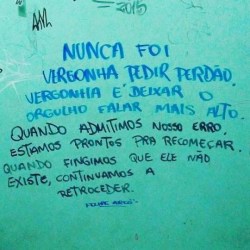 2015
NUNCA FOI
VERGONHA PEDIR PERDÃO.
VERGONHA É DEIXAR O
ORGULHO FALAR MAIS ALTO.
QUANDO ADMITIMOS NOSSO ERRO,
ESTAMOS PRONTOS PRA RECOMEÇAR.
QUANDO FINGIMOS QUE ELE NÃO
EXISTE, CONTINUAMOS A
RETROCEDER.